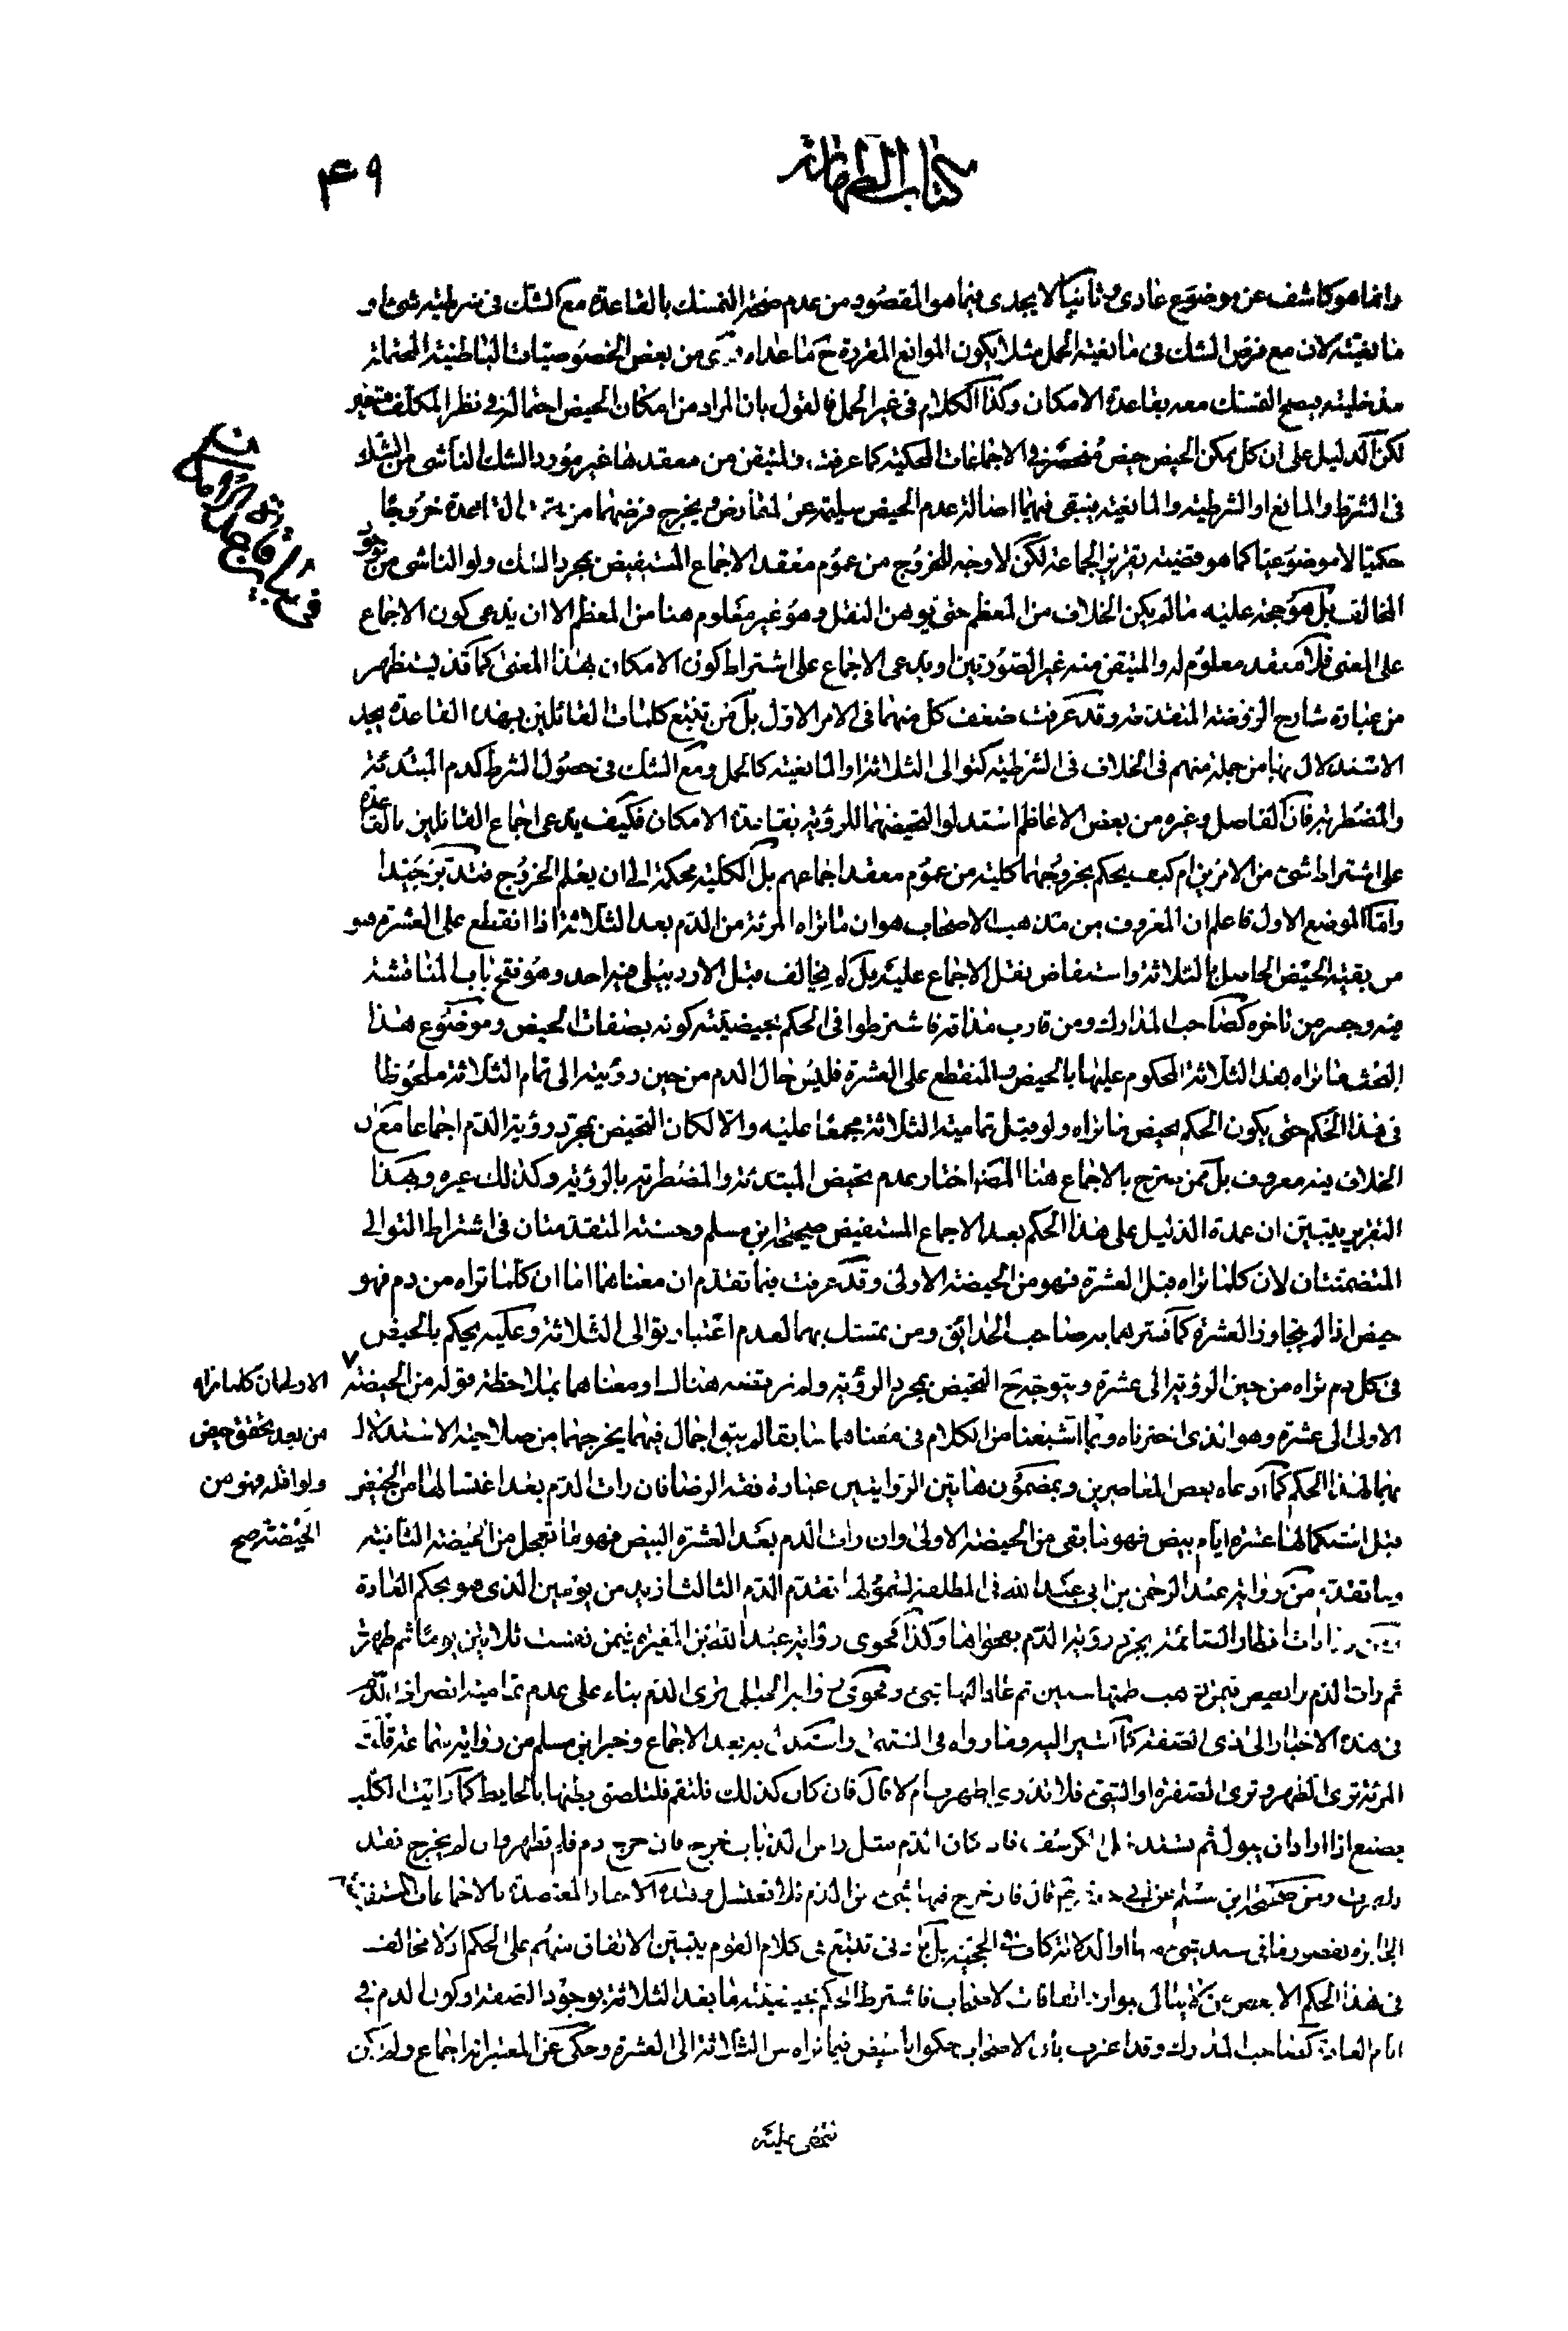 كتاب الطهارة
٤٩
وانما هو كاشف عن موضوع عادى وثانيا لا يجدى فيما هو المقصود من عدم صحة التمسك بالقاعدة مع الشك فى شرطية شئ او
مانعيته لان مع فرض الشك فى مانعية الحمل مثلا يكون الموانع المقررة ح ما عداه من بعض الخصوصيات الباطنية المحتملة
مدخليته فيصح التمسك معه بقاعدة الامكان وكذا الكلام فى غير الحمل فالقول بان المراد من امكان الحيض احتماله فى نظر المكلف متعين
لكن الدليل على ان كل ممكن الحيض حيض منحصر فى الاجماعات المحكية كما عرفت والمتيقن من معقدها غير مورد الشك الناشى من الشك
فى الشرط والمانع او الشرطية والمانعية فيبقى فيهما اصالة عدم الحيض سليمة عن المعارض ويخرج فرضهما من القاعدة خروجا
حكميا لا موضوعيا كما هو قضية تقرير الجماعة لكن لا وجه للخروج من عموم معقد الاجماع المستفيض بمجرد الشك ولو الناشى من وجود
المخالف بل هو حجة عليه ما لم يكن الخلاف من المعظم حتى يوهن النقل وهو غير معلوم هنا من المعظم الا ان يدعى كون الاجماع
على المعنى فلا معقد معلوم له والمتيقن منه غير الصورتين او يدعى الاجماع على اشتراط كون الامكان بهذا المعنى كما قد يستظهر
من عبارة شارح الروضة المتقدمة وقد عرفت ضعف كل منهما فى الامر الاول بل من تتبع كلمات القائلين بهذه القاعدة يجد
الاستدلال بها من جملة منهم فى الخلاف فى الشرطية كتوالى الثلاثة او المانعية كالحمل ومع الشك فى حصول الشرط كدم المبتدئة
والمضطربة فان الفاضل وغيره من بعض الاعاظم استدلوا لتحيضهما للرؤية بقاعدة الامكان فكيف يدعى اجماع القائلين بالقاعدة
على اشتراط شئ من الامرين ام كيف يحكم بخروجهما كلية من عموم معقد اجماعهم بل الكلية محكمة الى ان يعلم الخروج فتدبر جيدا
واما الموضع الاول فاعلم ان المعروف من مذهب الاصحاب هو ان ما تراه المرئة من الدم بعد الثلاثة اذا انقطع على العشرة فهو
من بقية الحيض الحاصل بالثلاثة واستفاض نقل الاجماع عليه بل لم يخالف قبل الاردبيلى فيه احد وهو فتح باب المناقشة
فيه وجسر من تاخره كصاحب المدارك ومن قارب مذاقه فاشترطوا فى الحكم بحيضيته كونه بصفات الحيض وموضوع هذا
البحث ما تراه بعد الثلاثة المحكوم عليها بالحيض والمنقطع على العشرة فليس حال الدم من حين رؤيته الى تمام الثلاثة ملحوظا
فى هذا الحكم حتى يكون الحكم بحيض ما تراه ولو قبل تمامية الثلاثة مجمعا عليه والا لكان التحيض بمجرد رؤية الدم اجماعا مع ان
الخلاف فيه معروف بل ممن صرح بالاجماع هنا المص اختار عدم تحيض المبتدئة والمضطربة بالرؤية وكذلك غيره وبهذا
التقرير يتبين ان عمدة الدليل على هذا الحكم بعد الاجماع المستفيض صحيحة ابن مسلم وحسنته المتقدمتان فى اشتراط التوالى
المتضمنتان لان كلما تراه قبل العشرة فهو من الحيضة الاولى وقد عرفت فيما تقدم ان معناهما اما ان كلما تراه من دم فهو
حيض اذا لم يتجاوز العشرة كما فسرهما به صاحب الحدائق ومن تمسك بهما لعدم اعتبار توالى الثلاثة وعليه يحكم بالحيض
فى كل دم تراه من حين الرؤية الى عشرة ويتوجه ح التحيض بمجرد الرؤية ولم نرتضه هناك او معناهما بملاحظة قوله من الحيضة
الاولى الى عشرة وهو الذى اخترناه وبما اشبعنا من الكلام فى معناهما سابقا لم يبق اجمال فيهما يخرجهما من صلاحية الاستدلال
بهما لهذا الحكم كما ادعاه بعض المعاصرين وبمضمون هاتين الروايتين عبارة فقه الرضا فان رات الدم بعد اغتسالها من الحيض
قبل استكمالها عشرة ايام بيض فهو ما بقى من الحيضة الاولى وان رات الدم بعد العشرة البيض فهو ما تعجل من الحيضة الثانية
وما تقدم من رواية عبد الرحمن بن ابى عبد الله فى المطلقة لشمول ما تقدم الدم الثالث ازيد من يومين الذى هو بحكم العادة
افطار الصائمة بمجرد رؤية الدم بفحواها وكذا فحوى رواية عبد الله بن المغيرة فيمن نفست ثلاثين يوما ثم طهرت
ثم رات الدم
فى هذه الاخبار الى ذى الصفة كما اشير اليه وما رواه فى المنتهى واستدل به بعد الاجماع وخبر ابن مسلم من رواية سماعة قلت
المرئة ترى الطهر وترى الصفرة او الشئ فلا تدرى اطهرت ام لا قال فان كان كذلك فلتقم فلتلصق بطنها بالحايط كما رايت الكلب
يصنع اذا اراد ان يبول ثم تستدخل الكرسف فان كان الدم مثل راس الذباب خرج فان خرج دم فلم تطهر وان لم يخرج فقد
طهرت ومن صحيحة ابن مسلم عن ابى جعفر فان خرج فيها شئ من الدم فلا تغتسل وهذه الاخبار المعتضدة بالاجماعات المستفيضة
الجابرة لقصور ما فى سند او الدلالة كافية الحجية بل من تتبع فى كلام القوم يتبين الاتفاق منهم على الحكم اذ لا مخالف
فى هذا الحكم الا بعض من لا يبالى بموارد اتفاقات الاصحاب فاشترط الحكم بحيضية ما بعد الثلاثة بوجود الصفة او كون الدم فى
ايام العادة كصاحب المدارك وقد اعترف بان الاصحاب حكموا بالحيض فيما تراه من الثلاثة الى العشرة وحكى عن المعتبر انه اجماع ولم يكن
الاولى ان كلما تراه
من بعد تحقق حيض
ولو اقله فهو من
الحيضة صح